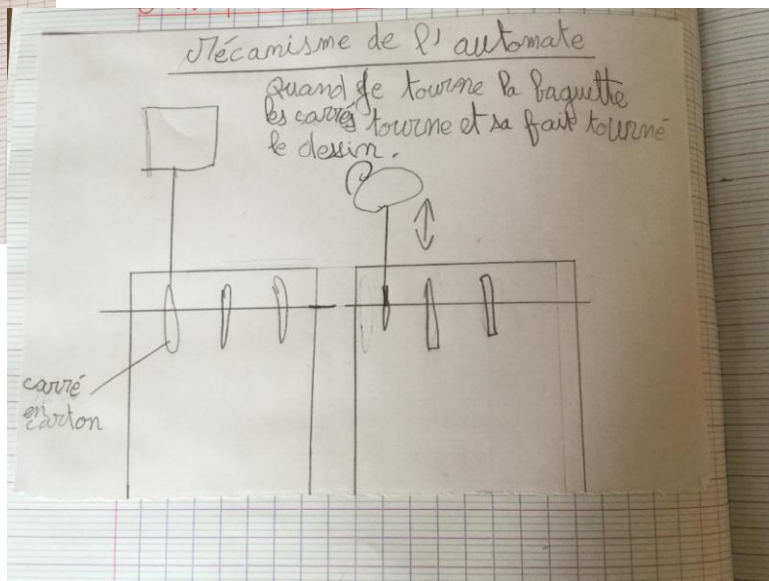 Mécanisme de l'automate
Quand je tourne la baguette
les carrés tourne et sa fait tourné
le dessin.
carré
en
carton